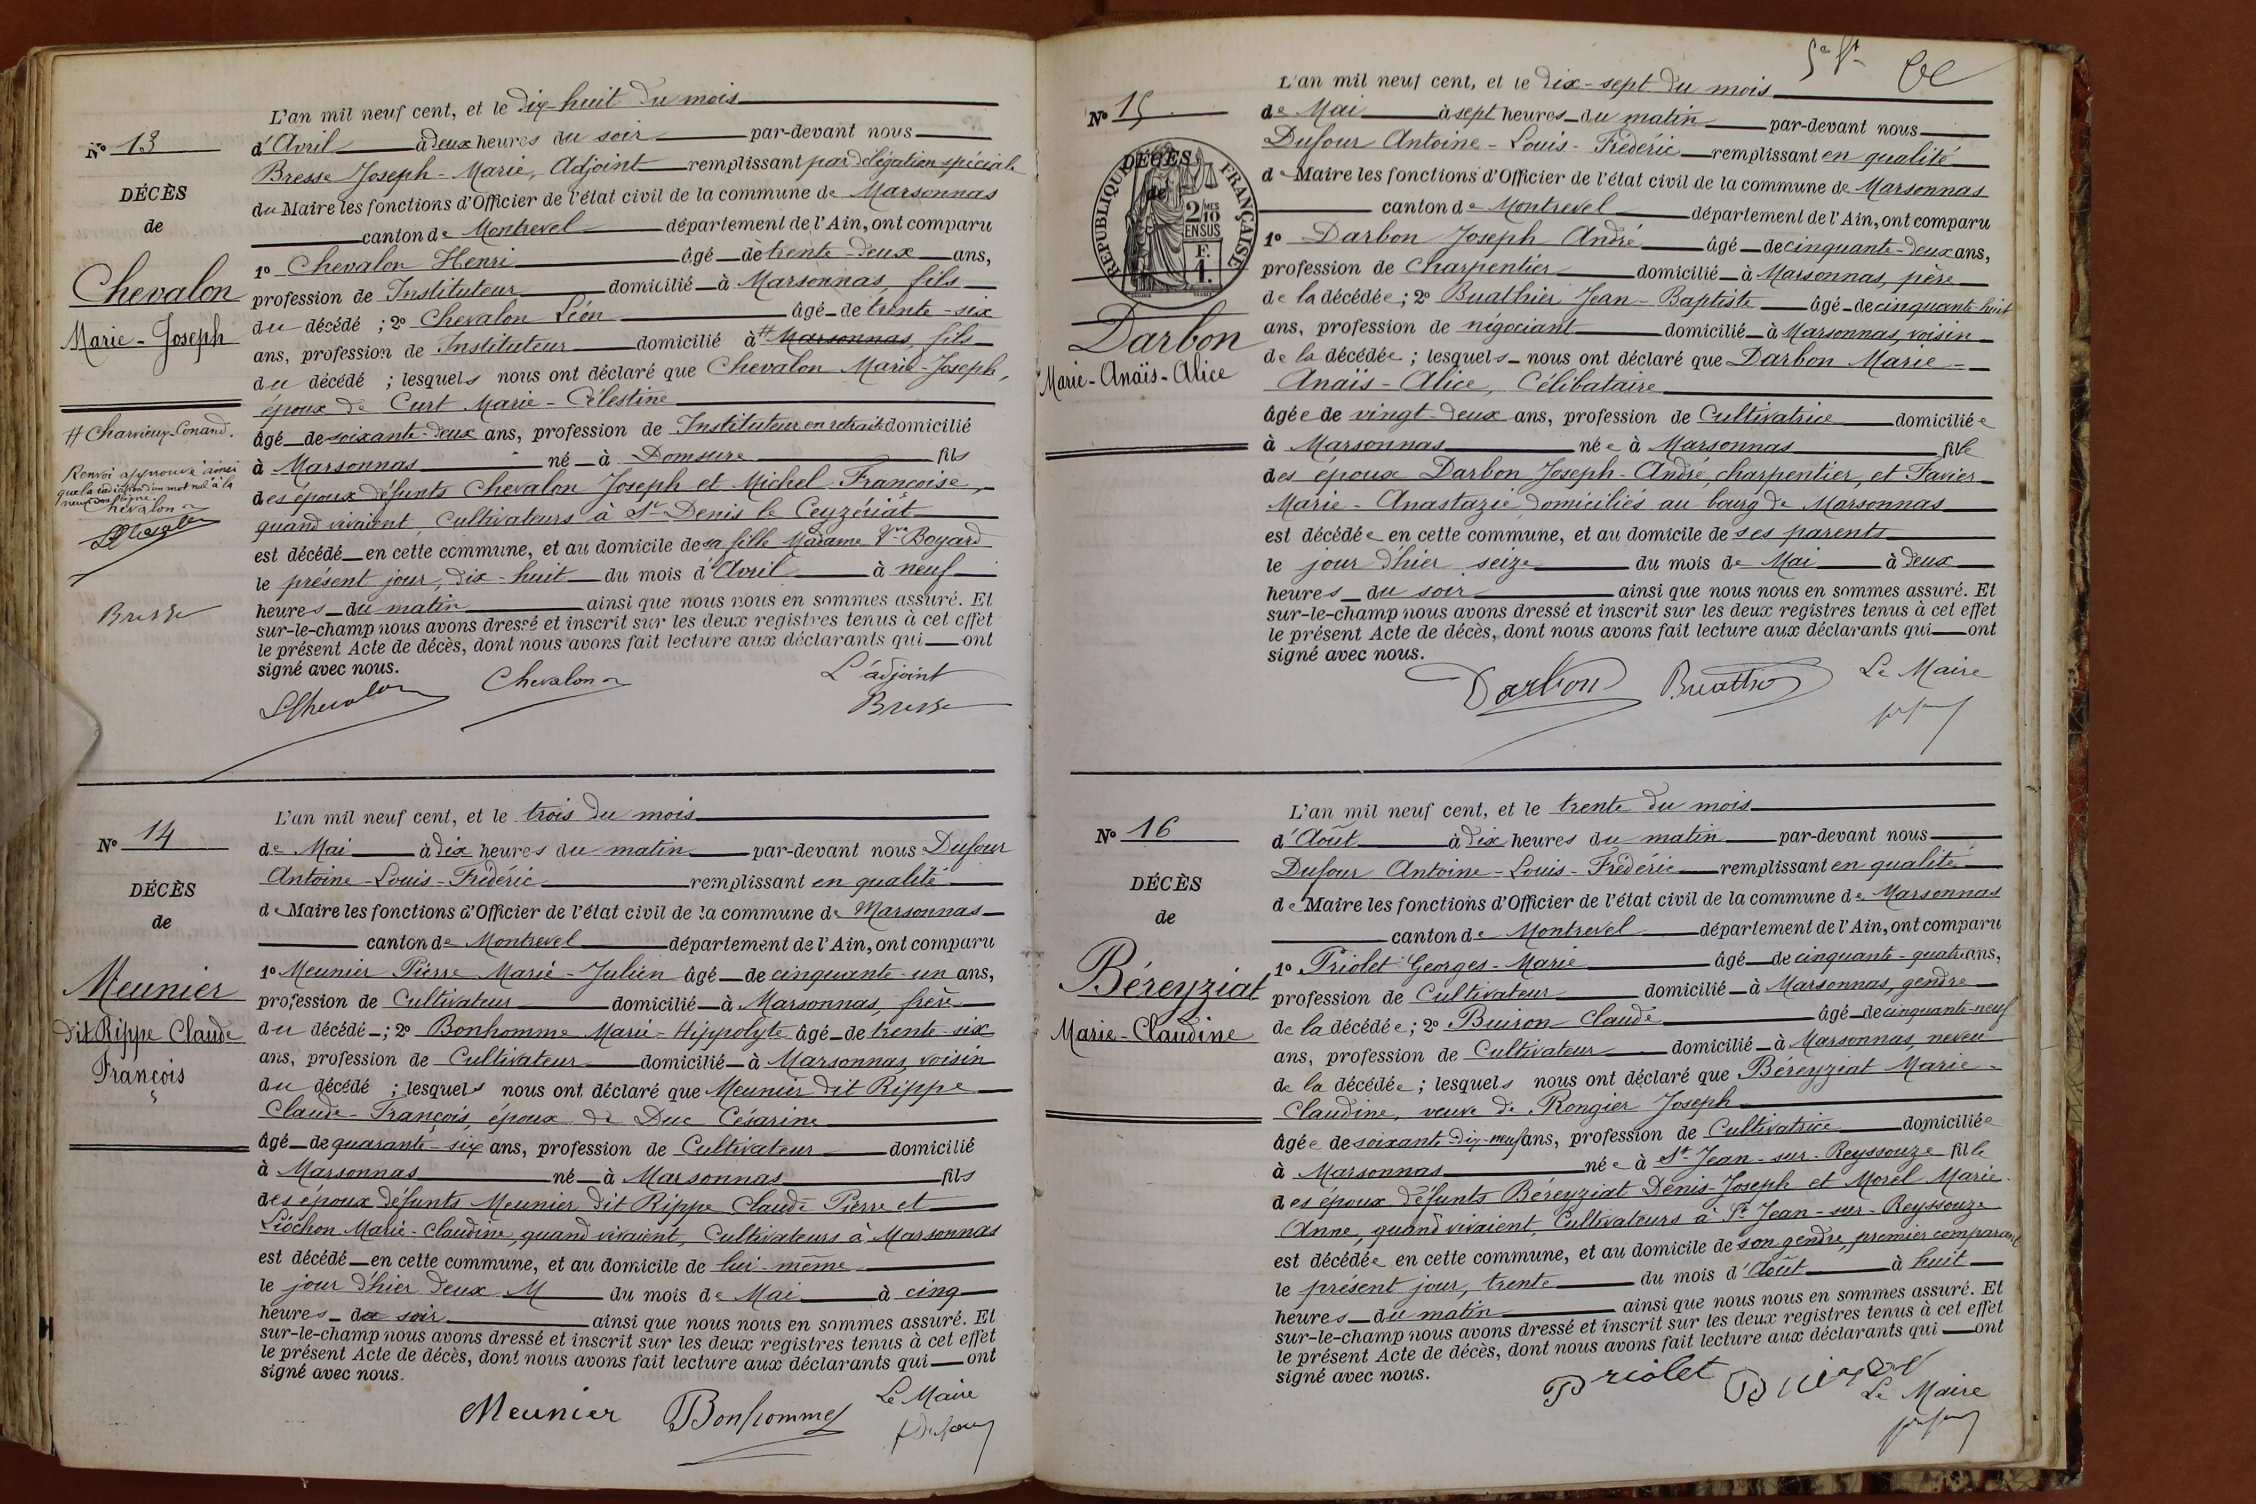 L'an mil neuf cent, et le dix-huit du mois
Nº 13
d'Avril à deux heures du soir par-devant nous
Bresse Joseph-Marie, Adjoint remplissant par délégation spéciale
DÉCÈS
du Maire les fonctions d'Officier de l'état civil de la commune de Marsonnas
de
canton de Montrevel département de l'Ain, ont comparu
1º Chevalon Henri âgé de trente-deux ans,
Chevalon
profession de Instituteur domicilié à Marsonnas, fils
du décédé ; 2º Chevalon Léon âgé de trente-six
Marie-Joseph
ans, profession de Instituteur domicilié à # Marsonnas, fils
du décédé ; lesquels nous ont déclaré que Chevalon Marie-Joseph,
époux de Curt Marie-Célestine
# Charvieux-Conand.
âgé de soixante-deux ans, profession de Instituteur en retraite domicilié
Renvoi approuvé ainsi
que la radiation d'un mot nul à la
neuvième ligne.
Chevalon
LChevalon
Bresse
à Marsonnas né à Domsure fils
des époux défunts Chevalon Joseph et Michel Françoise,
quand vivaient Cultivateurs à St Denis le Ceyzériat
est décédé en cette commune, et au domicile de sa fille Madame Vve Boyard
le présent jour, dix-huit du mois d'Avril à neuf
heures du matin ainsi que nous nous en sommes assuré. Et
sur-le-champ nous avons dressé et inscrit sur les deux registres tenus à cet effet
le présent Acte de décès, dont nous avons fait lecture aux déclarants qui ont
signé avec nous.
LChevalon Chevalon L'adjoint
Bresse
L'an mil neuf cent, et le trois du mois
Nº 14
de Mai à dix heures du matin par-devant nous Dufour
Antoine-Louis-Frédéric remplissant en qualité
DÉCÈS
de Maire les fonctions d'Officier de l'état civil de la commune de Marsonnas
de
canton de Montrevel département de l'Ain, ont comparu
1º Meunier Pierre Marie-Julien âgé de cinquante-un ans,
Meunier
profession de Cultivateur domicilié à Marsonnas, frère
dit Rippe Claude
du décédé ; 2º Bonhomme Marie-Hippolyte âgé de trente-six
ans, profession de Cultivateur domicilié à Marsonnas, voisin
François
du décédé ; lesquels nous ont déclaré que Meunier dit Rippe
Claude-François, époux de Duc Césarine
âgé de quarante-six ans, profession de Cultivateur domicilié
à Marsonnas né à Marsonnas fils
des époux défunts Meunier dit Rippe Claude Pierre et
Léochon Marie-Claudine, quand vivaient, Cultivateurs à Marsonnas
est décédé en cette commune, et au domicile de lui-même
le jour d'hier deux M du mois de Mai à cinq
heures du soir ainsi que nous nous en sommes assuré. Et
sur-le-champ nous avons dressé et inscrit sur les deux registres tenus à cet effet
le présent Acte de décès, dont nous avons fait lecture aux déclarants qui ont
signé avec nous.
Meunier Bonhomme Le Maire
fDufour
L'an mil neuf cent, et le dix-sept du mois
Nº 15
de Mai à sept heures du matin par-devant nous
Dufour Antoine-Louis-Frédéric remplissant en qualité
DÉCÈS
de
RÉPUBLIQUE FRANÇAISE
2 MES
10
EN SUS
F.
1.
de Maire les fonctions d'Officier de l'état civil de la commune de Marsonnas
canton de Montrevel département de l'Ain, ont comparu
1º Darbon Joseph André âgé de cinquante-deux ans,
profession de Charpentier domicilié à Marsonnas, père
de la décédée ; 2º Buathier Jean-Baptiste âgé de cinquante-huit
Darbon
ans, profession de négociant domicilié à Marsonnas, voisin
Marie-Anaïs-Alice
de la décédée ; lesquels nous ont déclaré que Darbon Marie-
Anaïs-Alice, Célibataire
âgée de vingt-deux ans, profession de Cultivatrice domiciliée
à Marsonnas née à Marsonnas fille
des époux Darbon Joseph-André, charpentier, et Favier
Marie-Anastazie domiciliés au bourg de Marsonnas
est décédée en cette commune, et au domicile de ses parents
le jour d'hier seize du mois de Mai à deux
heures du soir ainsi que nous nous en sommes assuré. Et
sur-le-champ nous avons dressé et inscrit sur les deux registres tenus à cet effet
le présent Acte de décès, dont nous avons fait lecture aux déclarants qui ont
signé avec nous.
Darbon Le Maire
L'an mil neuf cent, et le trente du mois
Nº 16
d'Août à dix heures du matin par-devant nous
Dufour Antoine-Louis-Frédéric remplissant en qualité
DÉCÈS
de Maire les fonctions d'Officier de l'état civil de la commune de Marsonnas
de
canton de Montrevel département de l'Ain, ont comparu
1º Priolet Georges-Marie âgé de cinquante-quatre ans,
Béreyziat
profession de Cultivateur domicilié à Marsonnas, gendre
Marie-Claudine
de la décédée ; 2º Buiron Claude âgé de cinquante-neuf
ans, profession de Cultivateur domicilié à Marsonnas, neveu
de la décédée ; lesquels nous ont déclaré que Béreyziat Marie-
Claudine, veuve de Rongier Joseph
âgée de soixante-dix-neuf ans, profession de Cultivatrice domiciliée
à Marsonnas née à St-Jean-sur-Reyssouze fille
des époux défunts Béreyziat Denis-Joseph et Morel Marie-
Anne, quand vivaient, Cultivateurs à St Jean-sur-Reyssouze
est décédée en cette commune, et au domicile de son gendre, premier comparant
le présent jour, trente du mois d'Août à huit
heures du matin ainsi que nous nous en sommes assuré. Et
sur-le-champ nous avons dressé et inscrit sur les deux registres tenus à cet effet
le présent Acte de décès, dont nous avons fait lecture aux déclarants qui ont
signé avec nous.
Priolet Buiron
Le Maire